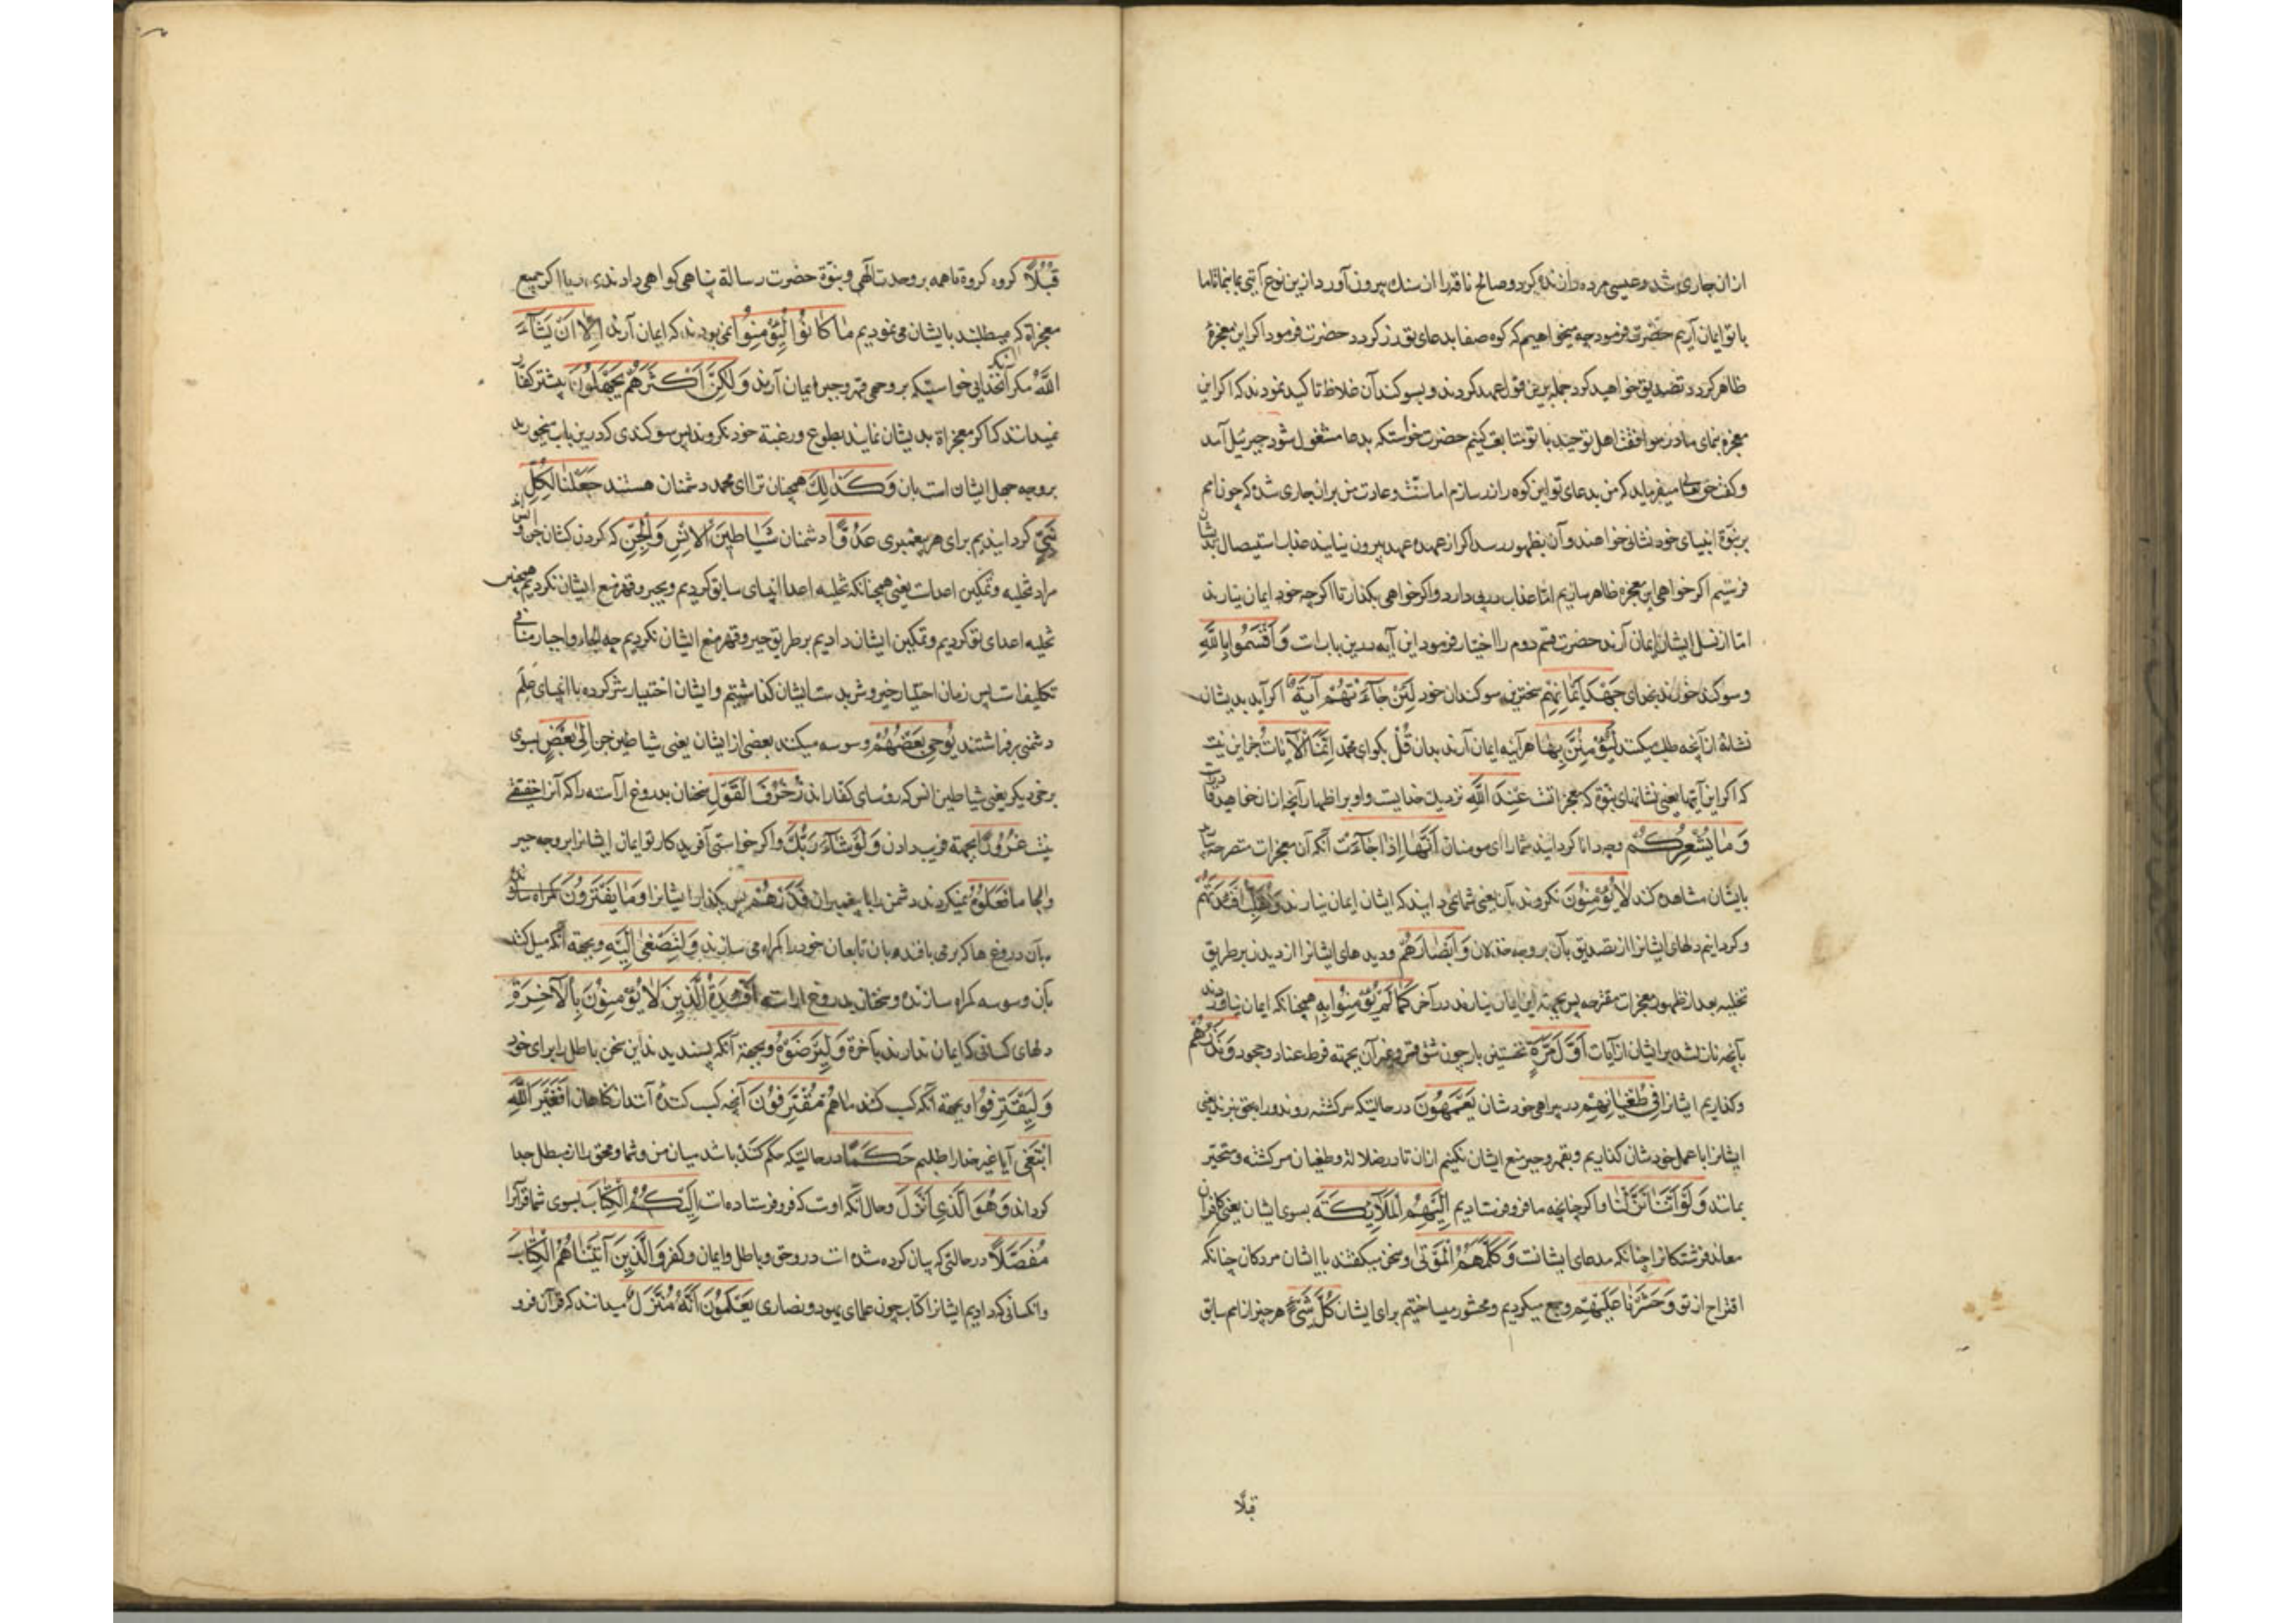 ازان جاری شد و عیسی مرده را زنده کرد و صالح ناقه را از سنك بیرون آورد ازین نوع آیتی بما بنما تا ما
با تو ایمان آریم حضرت فرمود چه میخواهیم که کوه صفا بدعای تو زر کردد حضرت فرمود اکر این معجزهٔ
ظاهر کردد تصدیق خواهید کرد جمله برین قول عهد کردند و بسوکندان غلاظ تاکید نمودند که اکر این
معجزه بمای ما در موافقت اهل توحید با تو متابعت کنیم حضرت خواست که بدعا مشغول شود جبرئیل آمد
و کفت حق تعالی میفرماید که من بدعای تو این کوه را زر سازم اما سنت و عادت من بران جاری شده که چون امم
بر نبوة انبیای خود نشانی خواهند و آن بظهور رسد اکر از عهده عهد بیرون نیایند عذاب استیصال بدیشان
فرستیم اکر خواهی این معجزه ظاهر سازیم اما عذاب در پی دارد و اکر خواهی بکذار تا اکرچه خود ایمان نیارند
اما از نسل ایشان ایمان آرند حضرت قسم دوم را اختیار فرمود این آیه درین بابست وَاَقْسَمُوا بِاللَّهِ
و سوکند خوردند بخدای جَهْدَ اَیْمَانِهِمْ سخترین سوکندان خود لَئِنْ جَآءَتْهُمْ آیَةٌ اکر آید بدیشان
نشانهٔ ازآنچه طلب میکنند لَیُؤْمِنُنَّ بِهَا هرآینه ایمان آرند بدان قُلْ بکو ای محمد اِنَّمَا الْآیَاتُ جز این نیست
که اکر این آیتها یعنی نشانهای نبوة که معجزاتست عِنْدَ اللَّهِ نزدیك خدایست و او بر اظهار آنچه ازان خواهد قادرست
وَمَا یُشْعِرُکُمْ و چه دانا کردانید شما را ای مومنان اَنَّهَا اِذَا جَآءَتْ آنکه آن معجزات مقترحه بیاید
بایشان مشاهده کنند لَا یُؤْمِنُونَ نکروند بآن یعنی شما نمی دانید که ایشان ایمان نیارند وَنُقَلِّبُ اَفْئِدَتَهُمْ
و کردانیم دلهای ایشانرا از تصدیق بآن بر وجه خذلان وَاَبْصَارَهُمْ و دیدهای ایشانرا از دیدن بر طریق
تخلیه بعد از ظهور معجزات مقترحه پس بجهته این ایمان نیارند در آخر کَمَا لَمْ یُؤْمِنُوا بِهِ همچنانکه ایمان نیاوردند
بآنچه نازل شد بر ایشان از آیات اَوَّلَ مَرَّةٍ نخستین بار چون شق قمر و غیر آن بجهته فرط عناد و جحود وَنَذَرُهُمْ
و کذاریم ایشانرا فِی طُغْیَانِهِمْ در بیراهی خودشان یَعْمَهُونَ در حالتیکه سرکشته روند و راه بحق نبرند یعنی
ایشانرا با عمل خودشان کذاریم و بقهر و جبر منع ایشان نکنیم ازان تا در ضلالة و طغیان سرکشته و متحیر
بمانند وَلَوْ اَنَّنَا نَزَّلْنَا و اکر چنانچه ما فرو فرستادیم اِلَیْهِمُ الْمَلَآئِکَةَ بسوی ایشان یعنی کافران
معاند فرشتکانرا چنانکه مدعای ایشانست وَکَلَّمَهُمُ الْمَوْتَی و سخن میکفتند با ایشان مردکان چنانکه
اقتراح از تو وَحَشَرْنَا عَلَیْهِمْ و جمع میکردیم و محشور میساختیم برای ایشان کُلَّ شَیْءٍ هر چیز از امم سابق
قبلًا
قُبُلًا کروه کروه تا همه بر وحدت الهی و نبوّة حضرت رسالة پناهی کواهی دادندی اکر جمیع
معجزاة که میطلبند بایشان می نمودیم مَا کَانُوا لِیُؤْمِنُوا نمی بودند که ایمان آرند اِلَّا اَنْ یَشَآءَ
اللَّهُ مکر آنکه خدای خواستی که بر وجه قهر و جبر ایمان آرند وَلَکِنَّ اَکْثَرَهُمْ یَجْهَلُونَ بیشتر کفار
نمیدانند که اکر معجزاة بدیشان نمایند بطوع و رغبة خود نکروند پس سوکندی که درین باب میخورند
بر وجه جهل ایشان است بان وَکَذَلِكَ همچنان ترا ای محمد دشمنان هستند جَعَلْنَا لِکُلِّ
نَبِیٍّ کردانیدیم برای هر پیغمبری عَدُوًّا دشمنان شَیَاطِینَ الْاِنْسِ وَالْجِنِّ که کردن کشان جن و انس اند
مراد تخلیه و تمکین اعداست یعنی همچنانکه تخلیه اعدا انبیای سابق کردیم و بجبر و قهر منع ایشان نکردیم همچنین
تخلیه اعدای تو کردیم و تمکین ایشان دادیم بر طریق جبر و قهر منع ایشان نکردیم چه الجاء و اجبار منافی
تکلیفاتست پس زمان اختیار خیر و شر بدست ایشان کذاشتیم و ایشان اختیار شر کرده با انبیای علم
دشمنی برفراشتند یُوحِی بَعْضُهُمْ وسوسه میکند بعضی از ایشان یعنی شیاطین جن اِلَی بَعْضٍ بسوی
برخی دیکر یعنی شیاطین انس که رؤسای کفارند زُخْرُفَ الْقَوْلِ سخنان بدروغ آراسته را که آنرا حقیقتی
نیست غُرُورًا بجهته فریب دادن وَلَوْ شَآءَ رَبُّكَ و اکر خواستی آفریدکار تو ایمان ایشانرا بر وجه جبر
و الجا مَا فَعَلُوهُ نمیکردند دشمنی را با پیغمبران فَذَرْهُمْ پس بکذار ایشانرا وَمَا یَفْتَرُونَ
بآن دروغها که بر می بافند و بان تابعان خود را کمراه می سازند وَلِتَصْغَی اِلَیْهِ و بجهته آنکه میل کند
بآن وسوسه کمراه سازنده و سخنان بدروغ آراسته اَفْئِدَةُ الَّذِینَ لَا یُؤْمِنُونَ بِالْآخِرَةِ
دلهای کسانی که ایمان ندارند بآخرة وَلِیَرْضَوْهُ و بجهته آنکه پسندیدند این سخن باطل را برای خود
وَلِیَقْتَرِفُوا و بجهته آنکه کسب کنند مَا هُمْ مُقْتَرِفُونَ آنچه کسب کنندهٔ آنند از کناهان اَفَغَیْرَ اللَّهِ
اَبْتَغِی آیا غیر خدا را طلبم حَکَمًا در حالتیکه حکم کننده باشد میان من و شما و محق را از مبطل جدا
کرداند وَهُوَ الَّذِی اَنْزَلَ و حال آنکه اوست که فرو فرستاده است اِلَیْکُمُ الْکِتَابَ بسوی شما قرآنرا
مُفَصَّلًا در حالتی که بیان کرده شده است درو حق و باطل و ایمان و کفر وَالَّذِینَ آتَیْنَاهُمُ الْکِتَابَ
و آنکسانی که دادیم ایشانرا کتاب چون علمای یهود و نصاری یَعْلَمُونَ اَنَّهُ مُنَزَّلٌ میدانند که قرآن فرو